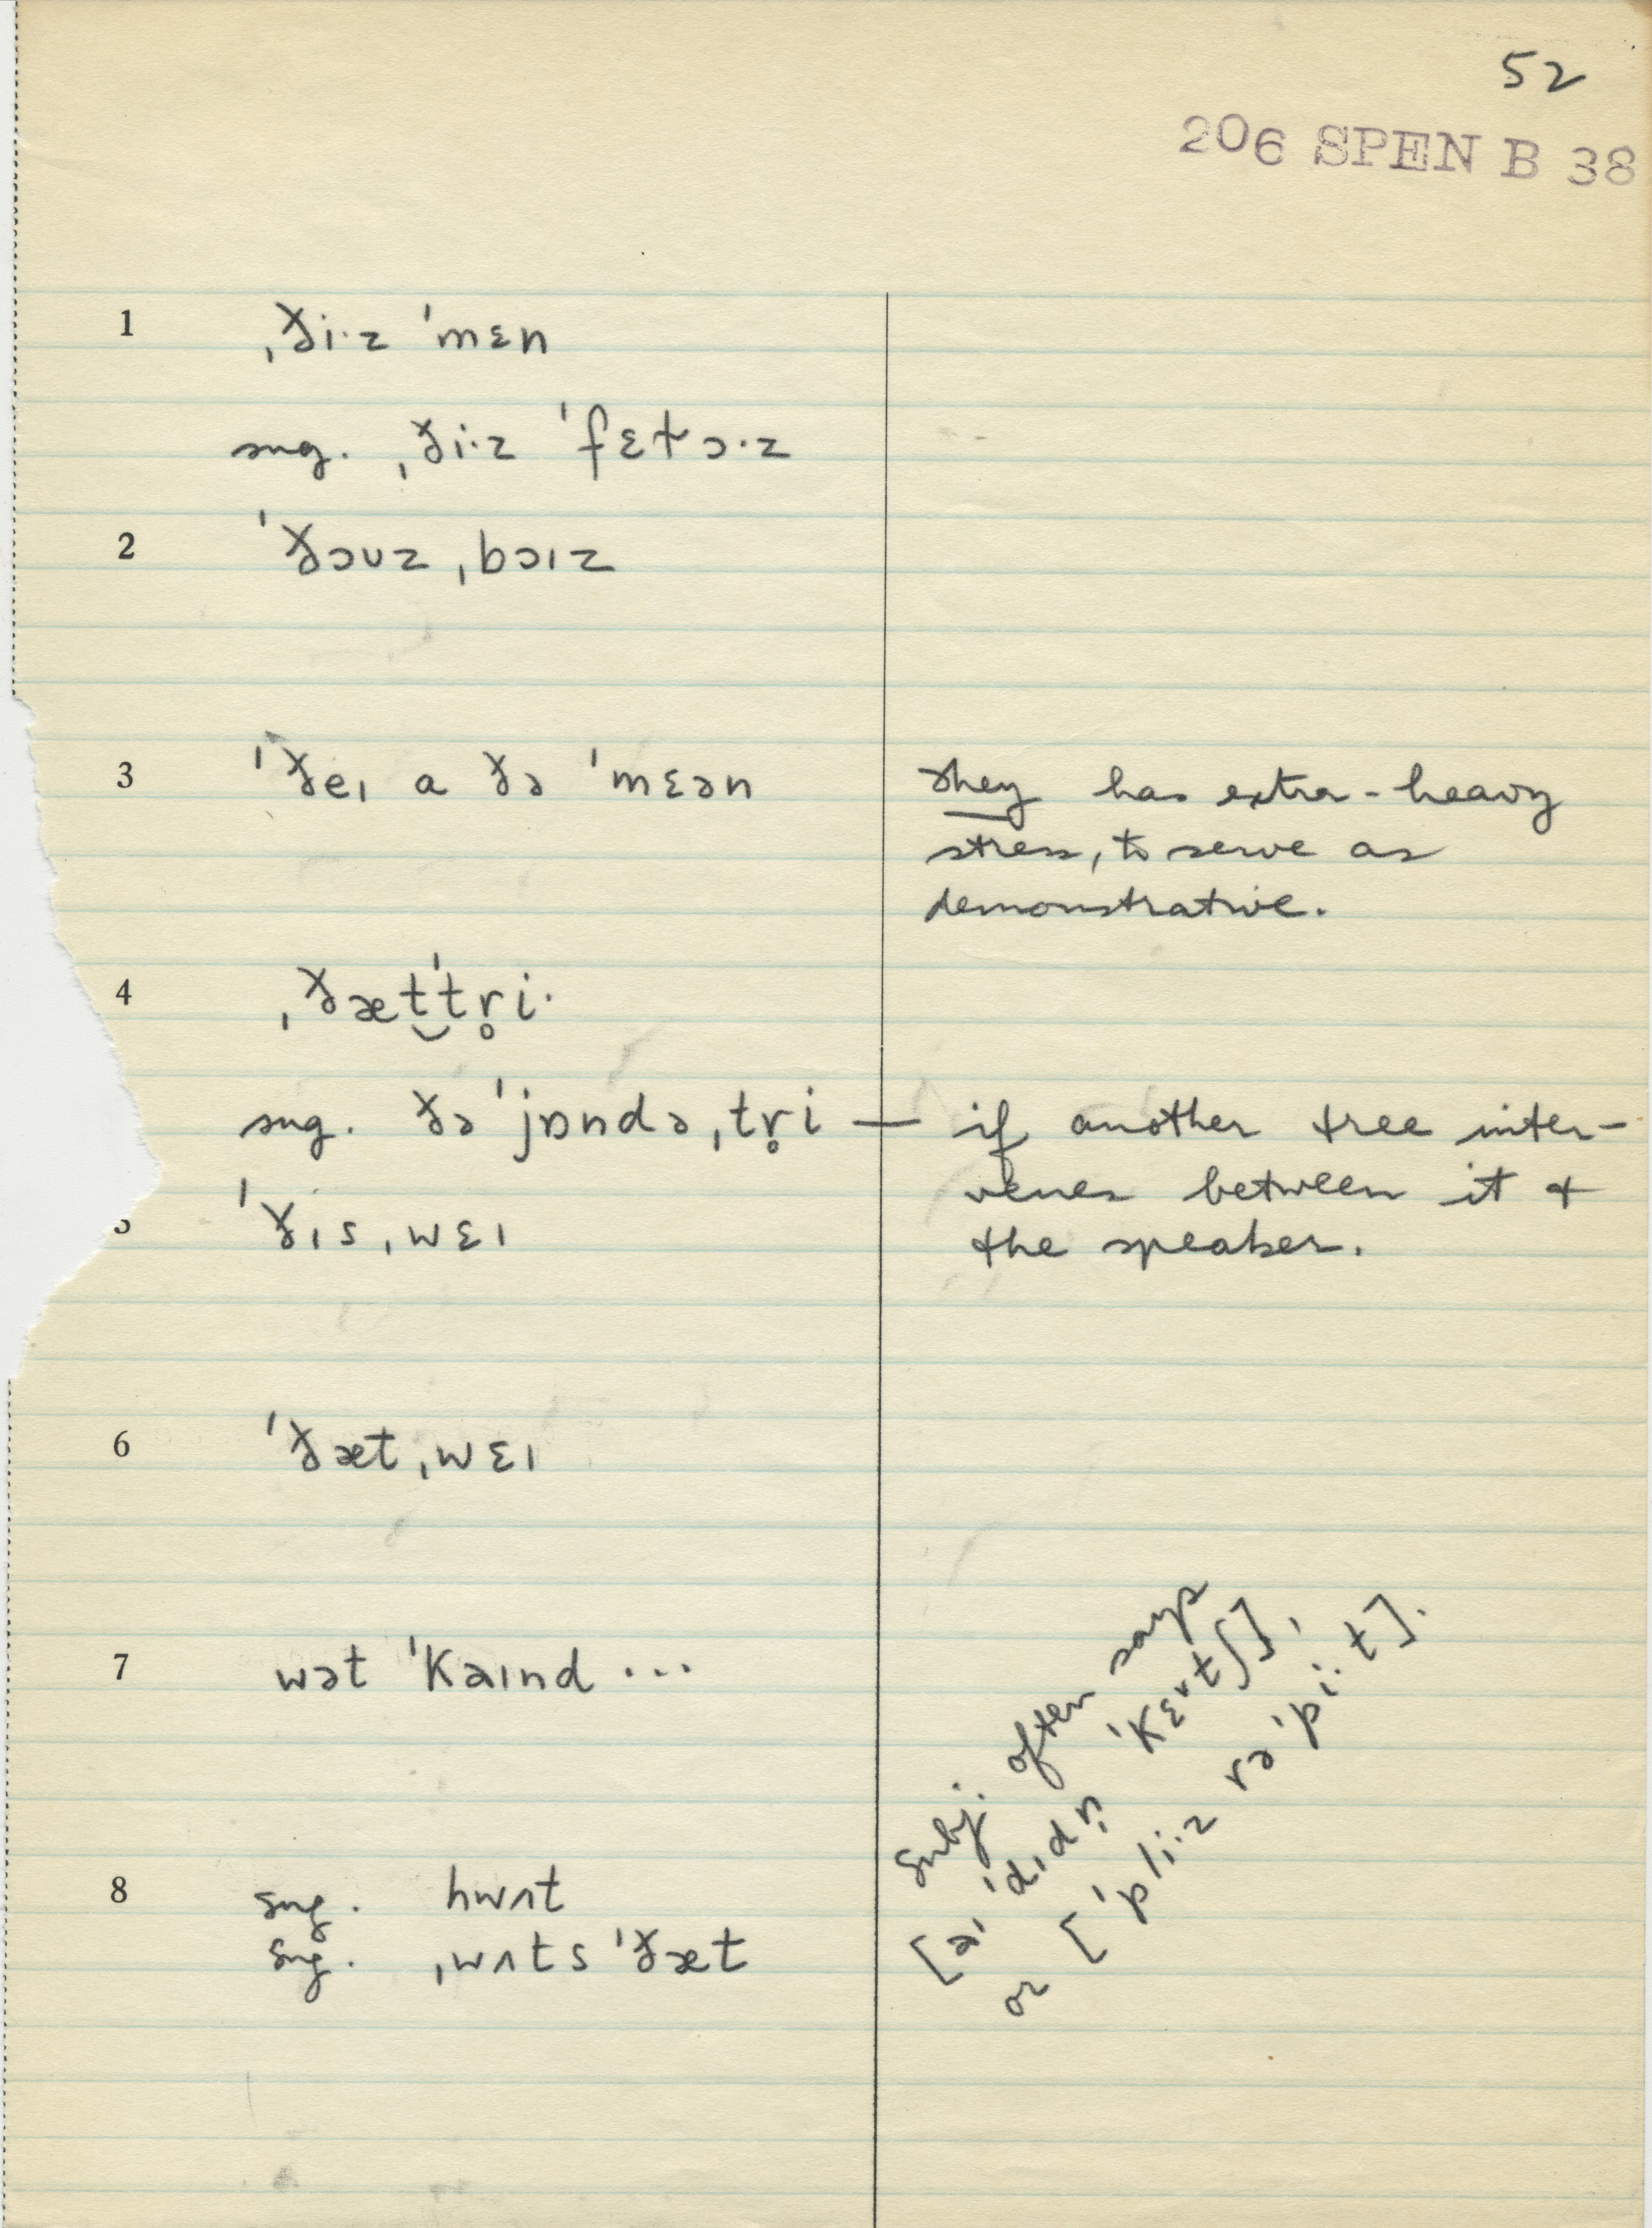 52
206 SPEN B 38
1 ˌði·z ˈmɛn
sug. ˌði·z ˈfɛɫɔ·z
2 ˈðɔʊz ˌbɔɪz
3 ˈðeɪ a ðə ˈmɛən
they has extra-heavy
stress, to serve as
demonstrative.
4 ˌðæt‿ˈtr̥i·
sug. ðə ˈjɒndə ˌtr̥i — if another tree inter-
venes between it +
the speaker.
ˈðɪs ˌwɛɪ
6 ˈðæt ˌwɛɪ
7 wət ˈkaɪnd ...
subj. often says
[aɪ ˈdɪdn̩ ˈkɛ˅tʃ],
or [ˈpli·z rəˈpi·t].
8 sug. hwʌt
sug. ˌwʌts ˈðæt